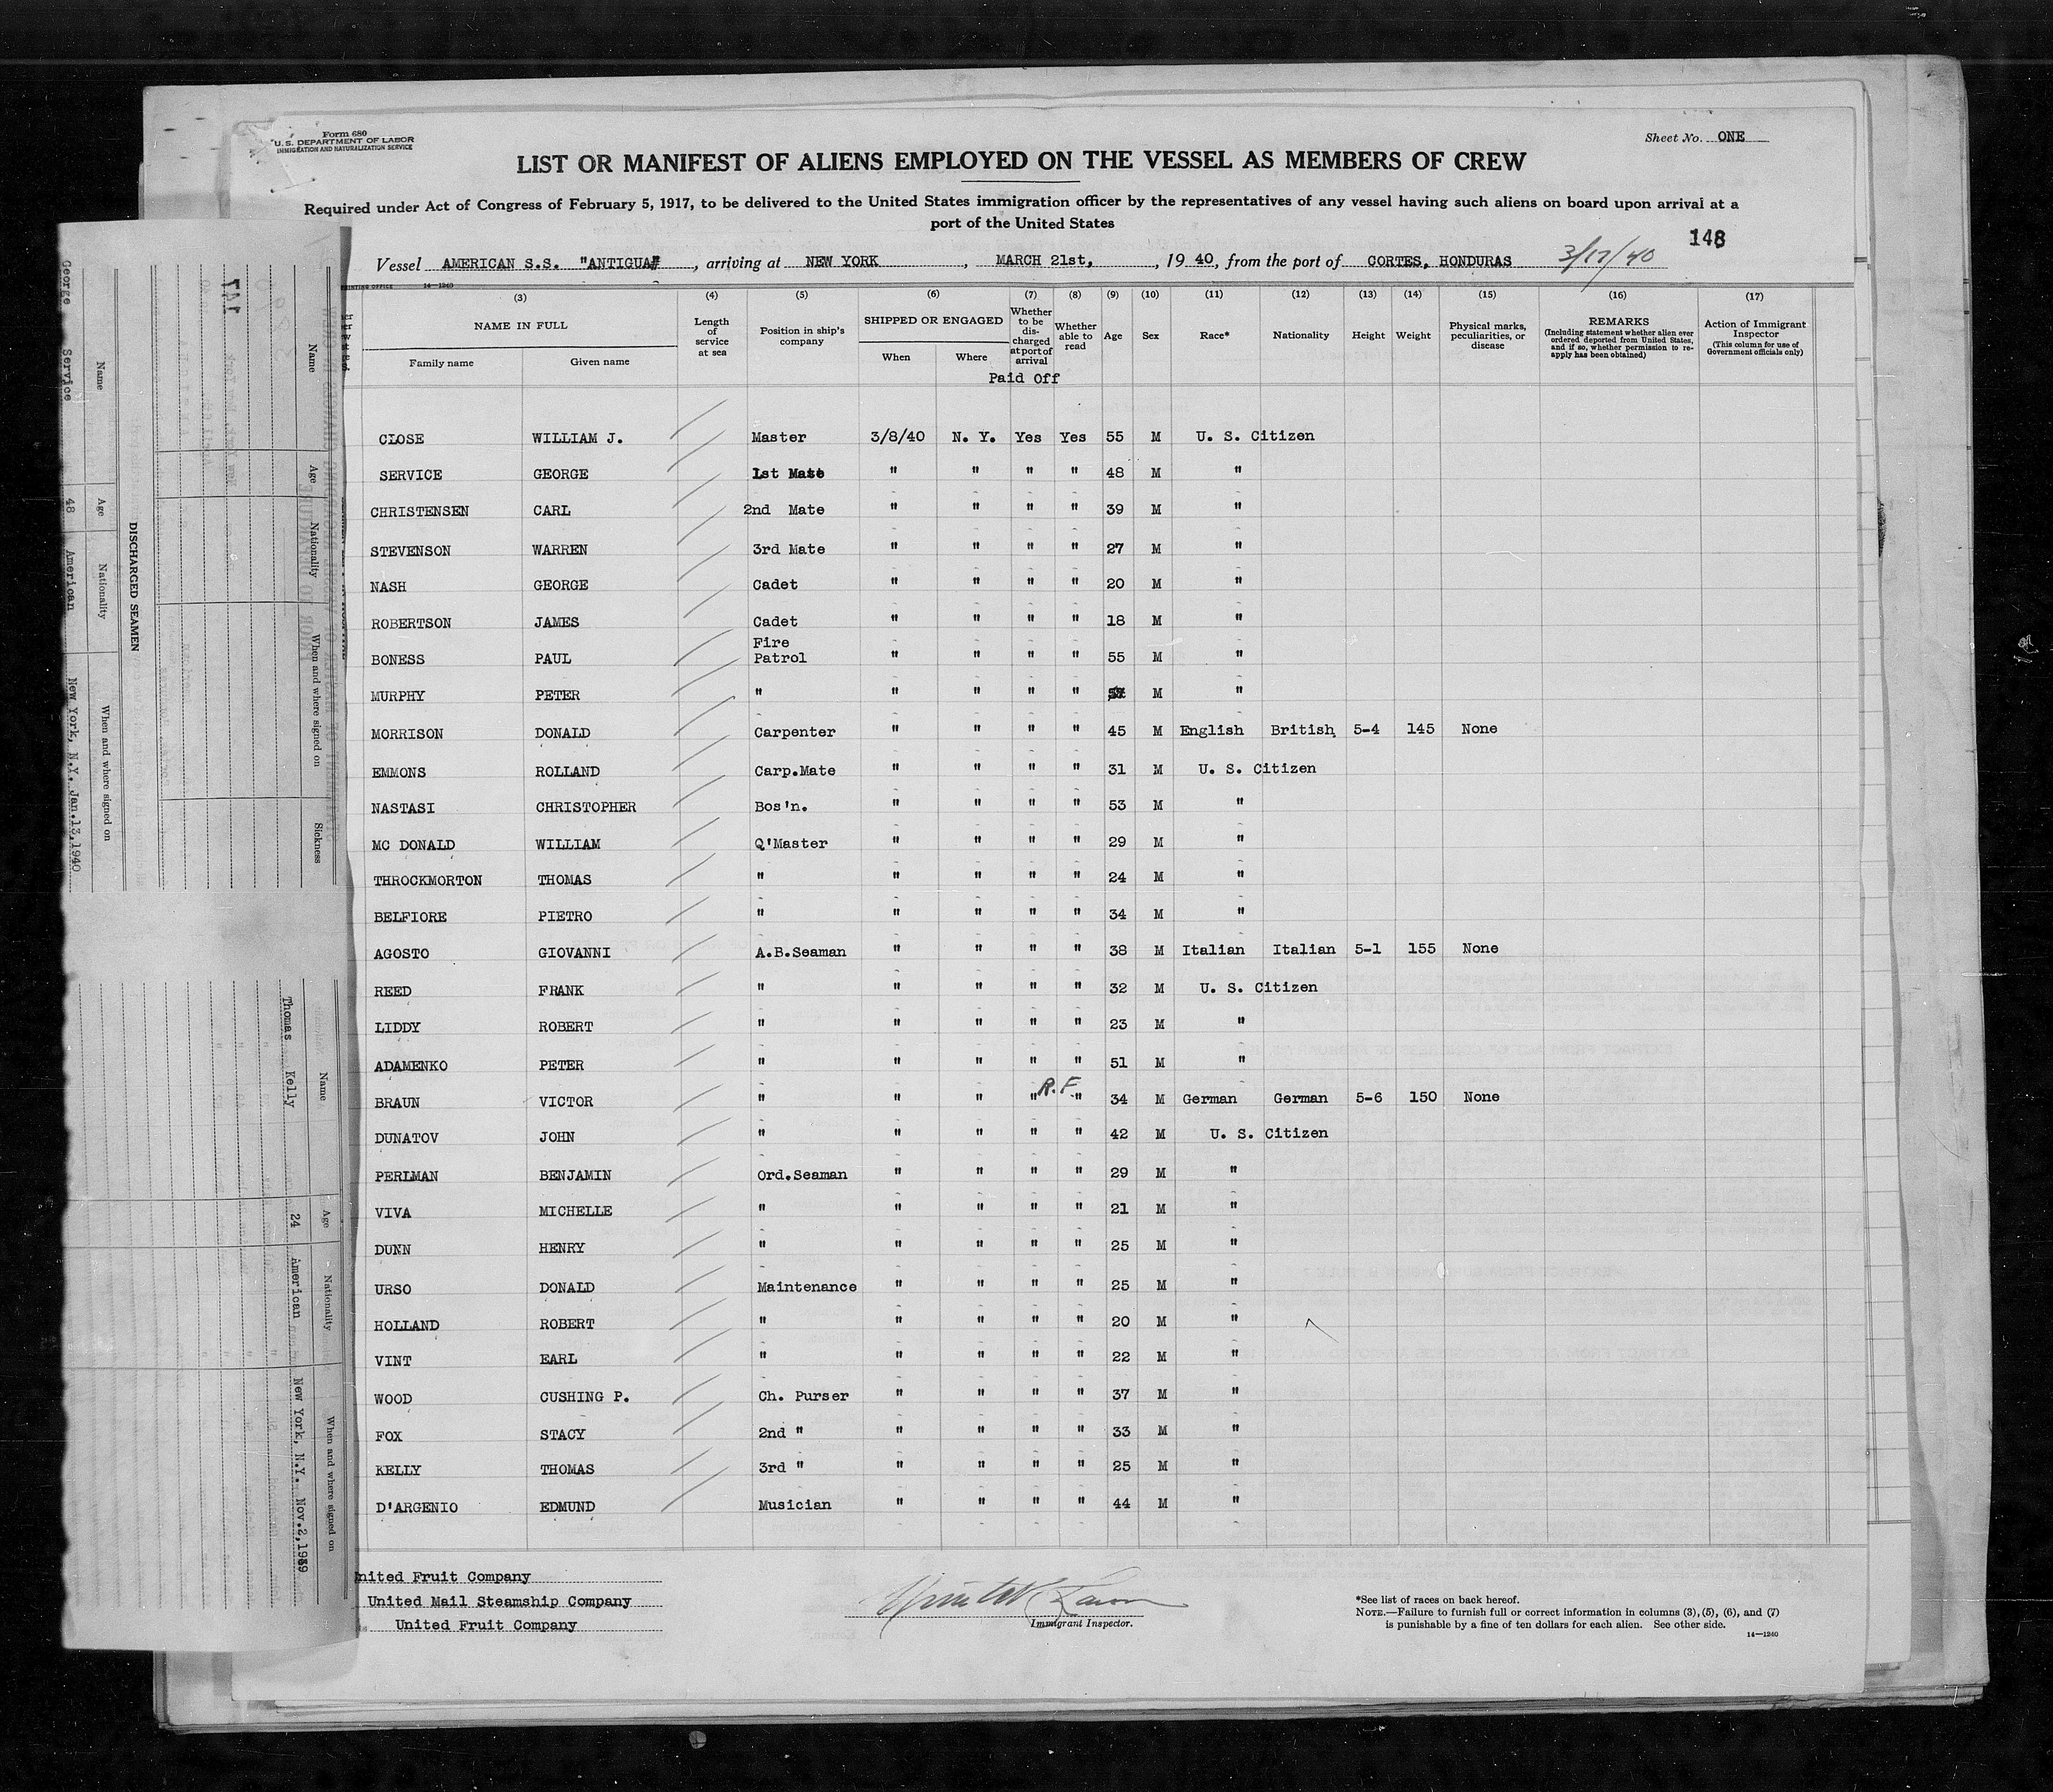 Form 680
U. S. DEPARTMENT OF LABOR
IMMIGRATION AND NATURALIZATION SERVICE
Sheet No. ONE
LIST OR MANIFEST OF ALIENS EMPLOYED ON THE VESSEL AS MEMBERS OF CREW
Required under Act of Congress of February 5, 1917, to be delivered to the United States immigration officer by the representatives of any vessel having such aliens on board upon arrival at a
port of the United States
148
Vessel AMERICAN S.S. "ANTIGUA# , arriving at NEW YORK , MARCH 21st, , 19 40, from the port of CORTES, HONDURAS 3/17/40
PRINTING OFFICE 14—1240
(3) (4) (5) (6) (7) (8) (9) (10) (11) (12) (13) (14) (15) (16) (17)
NAME IN FULL Length of service at sea Position in ship's company SHIPPED OR ENGAGED Whether to be discharged at port of arrival Whether able to read Age Sex Race* Nationality Height Weight Physical marks, peculiarities, or disease REMARKS (Including statement whether alien ever ordered deported from United States, and if so, whether permission to reapply has been obtained) Action of Immigrant Inspector (This column for use of Government officials only)
Family name Given name When Where
Paid Off
CLOSE WILLIAM J. Master 3/8/40 N. Y. Yes Yes 55 M U. S. Citizen
SERVICE GEORGE 1st Mate " " " " 48 M "
CHRISTENSEN CARL 2nd Mate " " " " 39 M "
STEVENSON WARREN 3rd Mate " " " " 27 M "
NASH GEORGE Cadet " " " " 20 M "
ROBERTSON JAMES Cadet " " " " 18 M "
Fire
BONESS PAUL Patrol " " " " 55 M "
MURPHY PETER " " " " " M "
MORRISON DONALD Carpenter " " " " 45 M English British 5-4 145 None
EMMONS ROLLAND Carp.Mate " " " " 31 M U. S. Citizen
NASTASI CHRISTOPHER Bos'n. " " " " 53 M "
MC DONALD WILLIAM Q'Master " " " " 29 M "
THROCKMORTON THOMAS " " " " " 24 M "
BELFIORE PIETRO " " " " " 34 M "
AGOSTO GIOVANNI A.B.Seaman " " " " 38 M Italian Italian 5-1 155 None
REED FRANK " " " " " 32 M U. S. Citizen
LIDDY ROBERT " " " " " 23 M "
ADAMENKO PETER " " " " " 51 M "
R.F.
BRAUN VICTOR " " " " " 34 M German German 5-6 150 None
DUNATOV JOHN " " " " " 42 M U. S. Citizen
PERLMAN BENJAMIN Ord.Seaman " " " " 29 M "
VIVA MICHELLE " " " " " 21 M "
DUNN HENRY " " " " " 25 M "
URSO DONALD Maintenance " " " " 25 M "
HOLLAND ROBERT " " " " " 20 M "
VINT EARL " " " " " 22 M "
WOOD CUSHING P. Ch. Purser " " " " 37 M "
FOX STACY 2nd " " " " " 33 M "
KELLY THOMAS 3rd " " " " " 25 M "
D'ARGENIO EDMUND Musician " " " " 44 M "
nited Fruit Company
United Mail Steamship Company
United Fruit Company
Immigrant Inspector.
*See list of races on back hereof.
NOTE.—Failure to furnish full or correct information in columns (3), (5), (6), and (7)
is punishable by a fine of ten dollars for each alien. See other side.
14—1240
147
Name Age Nationality When and where signed on Sickness
DISCHARGED SEAMEN
Name Age Nationality When and where signed on
George Service 48 American New York, N.Y. Jan.13,1940
Name Age Nationality When and where signed on
Thomas Kelly 24 American New York, N.Y. Nov.2,1939